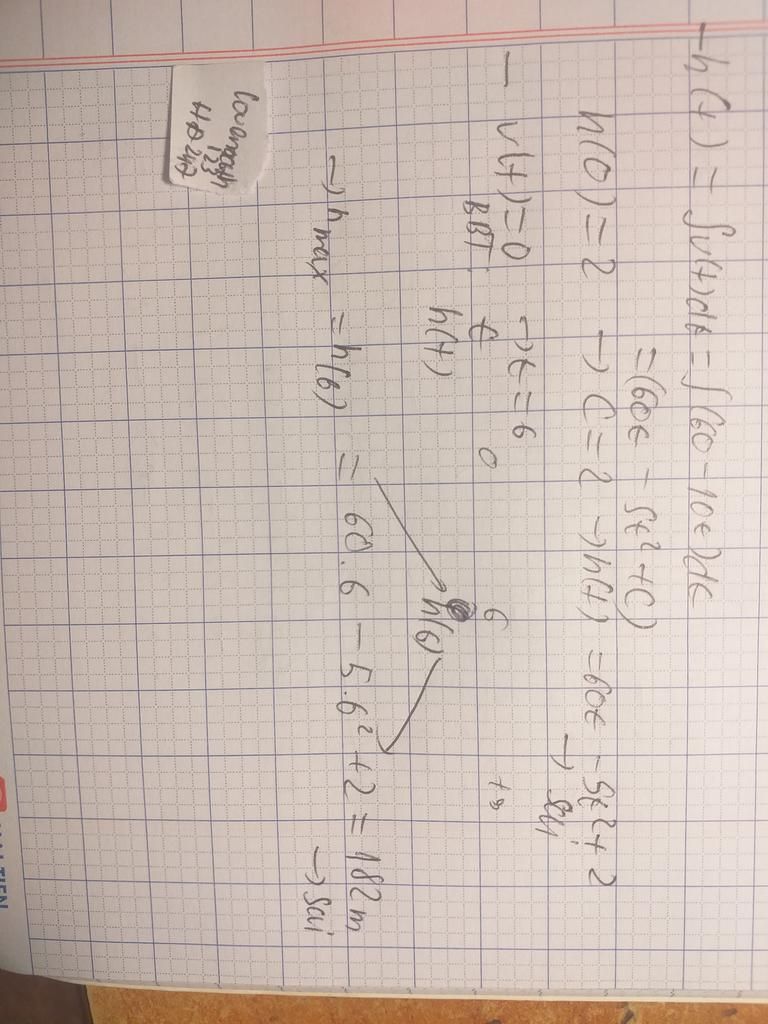 - h(t) = ∫v(t)dt = ∫(60 - 10t)dt
= (60t - 5t² + C)
h(0) = 2 → C = 2 → h(t) = 60t - 5t² + 2
→ sai
- v(t) = 0 → t = 6
BBT: t 0 6 +∞
h(t) h(6)
→ h max = h(6) = 60.6 - 5.6² + 2 = 182m
→ sai
123
HD247